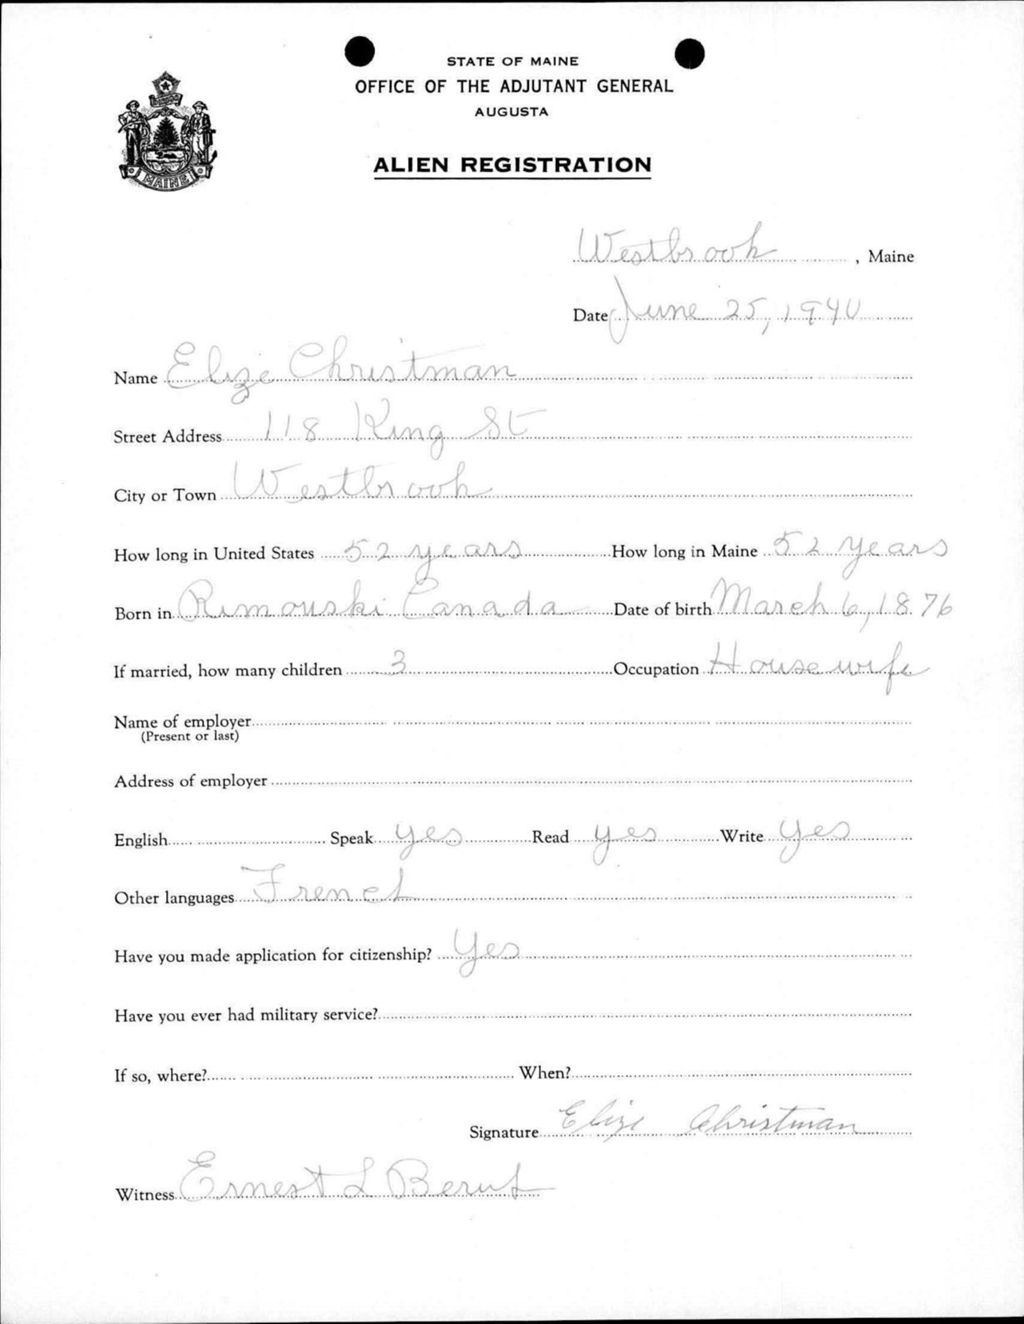 STATE OF MAINE
OFFICE OF THE ADJUTANT GENERAL
AUGUSTA
ALIEN REGISTRATION
MAINE
Westbrook, Maine
Date June 25, 1940
Name Elize Christman
Street Address 118 King St
City or Town Westbrook
How long in United States 52 years How long in Maine 52 years
Born in Rimouski Canada Date of birth March 6, 1876
If married, how many children 3 Occupation Housewife
Name of employer
(Present or last)
Address of employer
English Speak yes Read yes Write yes
Other languages French
Have you made application for citizenship? Yes
Have you ever had military service?
If so, where? When?
Signature Elize Christman
Witness Ernest L